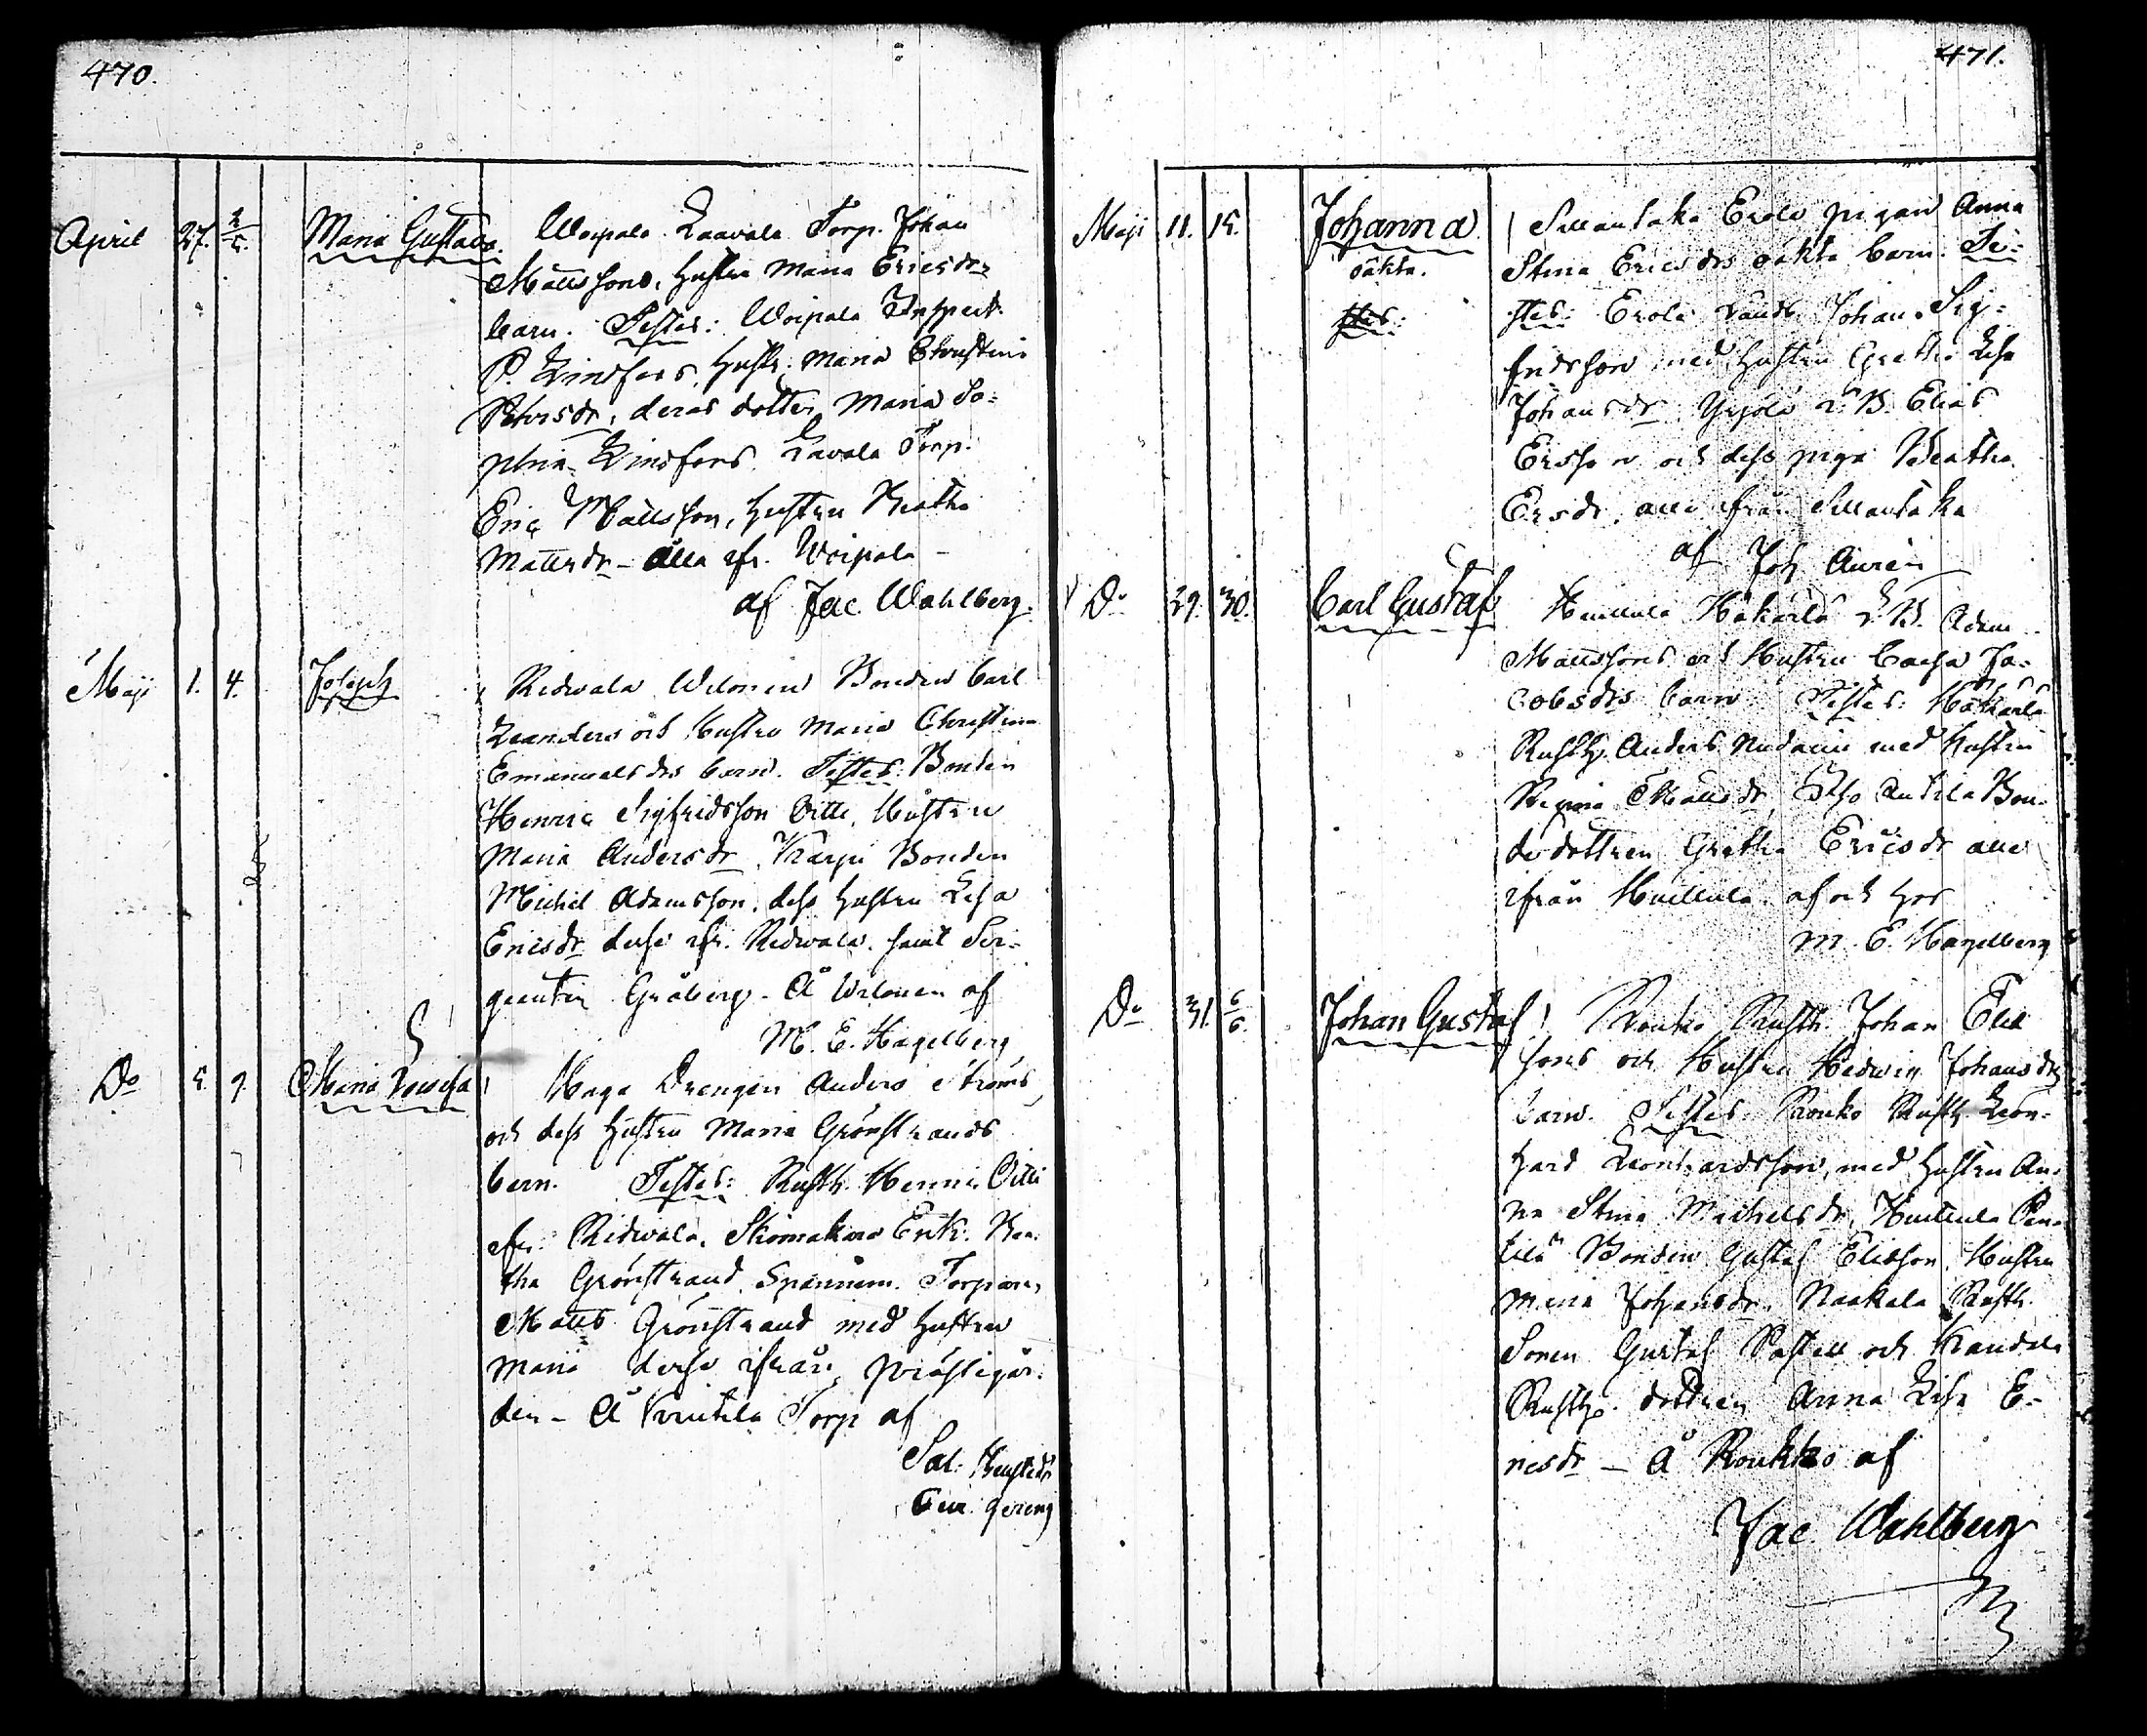 470.
April 27. 2/5. Maria Gustava. Woipala Laavala Torp. Johan
Mattssons, hustru Maria Ericsdrs
barn. Testes: Woipala Inspect.
P. Lindfors, hustr. Maria Christina
Petersdr, deras dotter Maria So-
phia Lindfors Lavala Torp.
Eric Mattsson, hustru Beatha
Mattsdr – alla ifr. Woipala –
af Jac Wahlberg.
Maji 1. 4. Joseph Ridvala Uelonen Bonden Carl
Leanders och Hustru Maria Christina
Emanuelsdrs barn. Testes: Bonden
Henric Sigfridsson Vitti, Hustru
Maria Andersdr, Karpi Bonden
Michel Adamsson, dess hustru Lisa
Ericsdr desse ifr. Ridvala, samt Ser-
geanten Gråberg – Å Uelonen af
M. E. Hagelberg
Do 5. 9. Maria Lovisa Haga Drengen Anders Ströms
och dess hustru Maria Grönstrands
barn. Testes: Rusth. Henric Vitti
ifr. Ridvala, Skomakare Enk. Bea-
tha Grönstrand, Spannm. Torparn
Matts Grönstrand med hustru
Maria desse ifrån prästegår-
den – Å Torp af
Sal.
471.
Maji 11. 15. Johanna Sillantaka Erola pigan Anna
oäkta. Stina Ericsdrs oäkta barn. Te-
stes: stes: Erola Johan Sig-
fridsson med hustru Gretha Lisa
Johansdr Yrjölä R. B. Elias
Ersson och dess piga Beatha
Ersdr, alla ifrån Sillantaka
af Joh Aurén
Do 29. 30. Carl Gustaf Huittula Häkärlä R. B. Adam
Mattssons och Hustru Caisa Ja-
cobsdrs barn Testes: Häkärlä
Rusth. Anders med hustru
Regina Mattsdr, Antila Bon-
dedottren Gretha Ericsdr alla
ifrån Huittula af och hos
M. E. Hagelberg
Do 31. 6/6. Johan Gustaf Roukko Rusth. Johan Elia
sons och Hustru Hedwig Johansdrs
barn. Testes: Roukko Rusth. Leon-
hard Leonhardsson, med hustru An-
na Stina Michelsdr, Huittula Pen-
tilä Bonden Gustaf Eliasson, Hustru
Maria Johansdr, Naakala Rusth.
Sonen Gustaf och
Rusth. dottren Anna Lisa E-
ricsdr – Å Roukko af
Jac Wahlberg